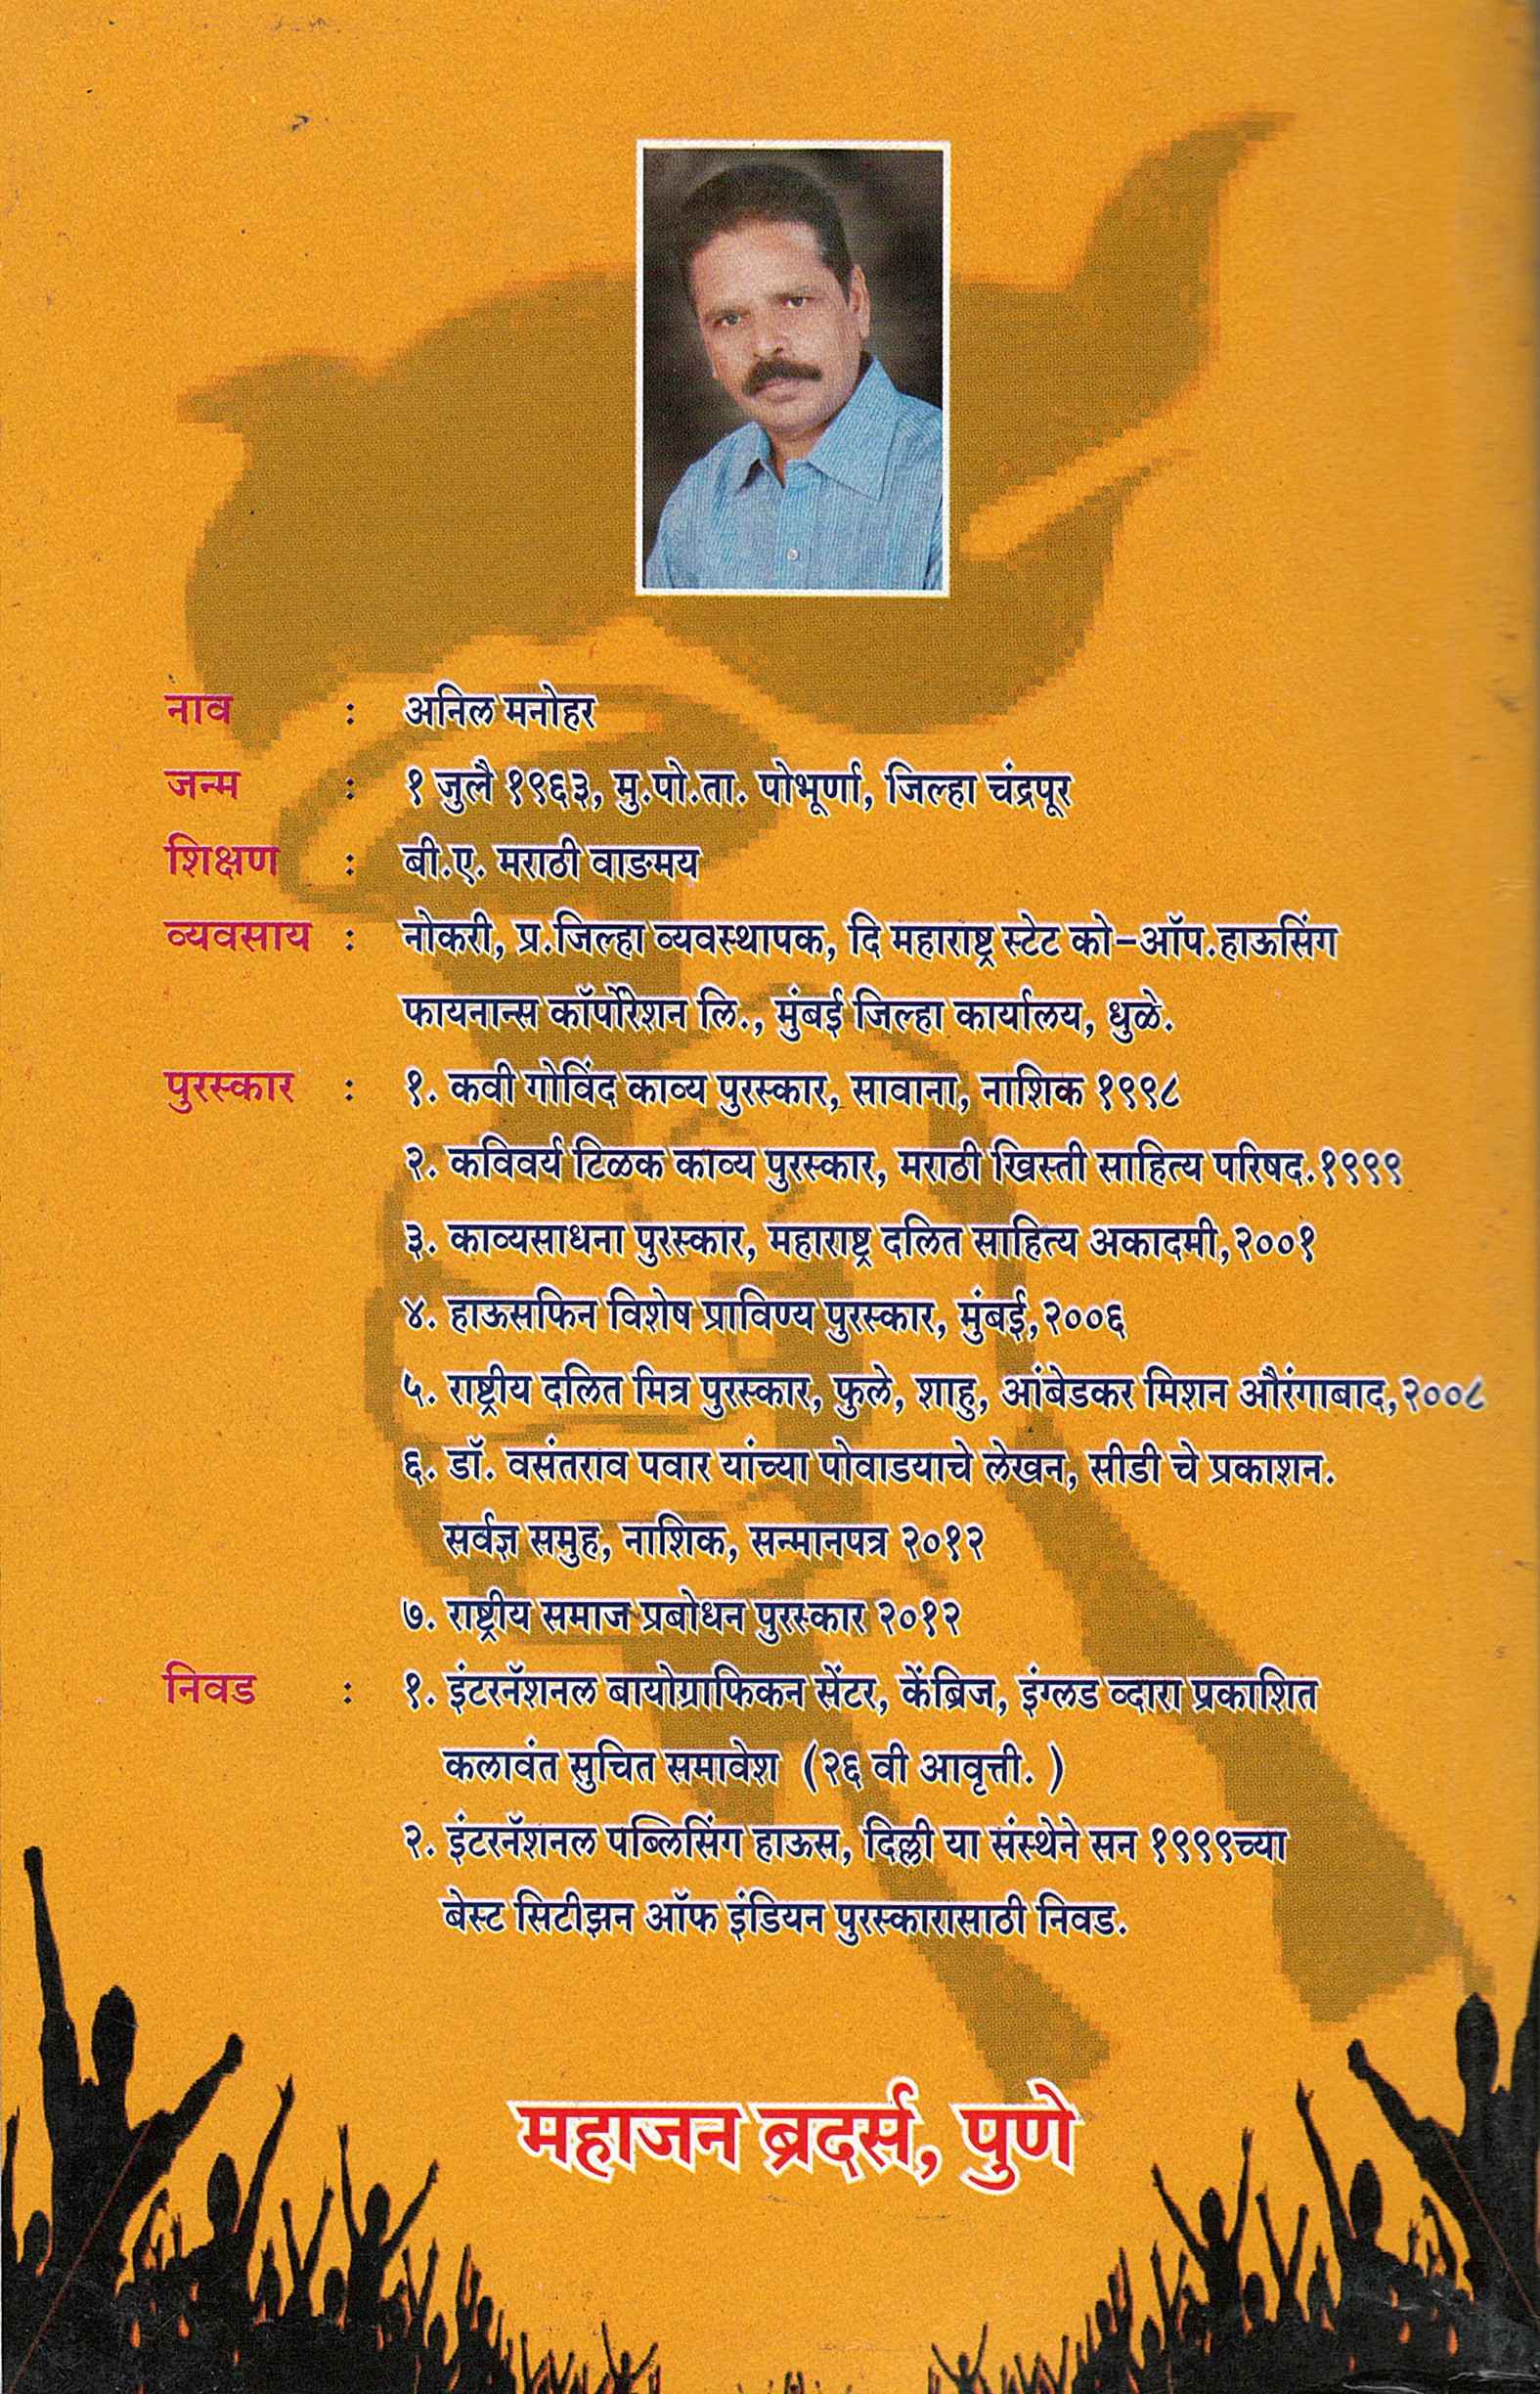 नाव : अनिल मनोहर
जन्म : १ जुलै १९६३, मु.पो.ता. पोभूर्णा, जिल्हा चंद्रपूर
शिक्षण : बी.ए. मराठी वाङमय
व्यवसाय : नोकरी, प्र.जिल्हा व्यवस्थापक, दि महाराष्ट्र स्टेट को-ऑप.हाऊसिंग
फायनान्स कॉर्पोरेशन लि., मुंबई जिल्हा कार्यालय, धुळे.
पुरस्कार : १. कवी गोविंद काव्य पुरस्कार, सावाना, नाशिक १९९८
२. कविवर्य टिळक काव्य पुरस्कार, मराठी खिस्ती साहित्य परिषद.१९९९
३. काव्यसाधना पुरस्कार, महाराष्ट्र दलित साहित्य अकादमी,२००१
४. हाऊसफिन विशेष प्राविण्य पुरस्कार, मुंबई,२००६
५. राष्ट्रीय दलित मित्र पुरस्कार, फुले, शाहु, आंबेडकर मिशन औरंगाबाद,२००८
६. डॉ. वसंतराव पवार यांच्या पोवाडयाचे लेखन, सीडी चे प्रकाशन.
सर्वज्ञ समुह, नाशिक, सन्मानपत्र २०१२
७. राष्ट्रीय समाज प्रबोधन पुरस्कार २०१२
निवड : १. इंटरनॅशनल बायोग्राफिकन सेंटर, केंब्रिज, इंग्लड व्दारा प्रकाशित
कलावंत सुचित समावेश (२६ वी आवृत्ती. )
२. इंटरनॅशनल पब्लिसिंग हाऊस, दिल्ली या संस्थेने सन १९९९च्या
बेस्ट सिटीझन ऑफ इंडियन पुरस्कारासाठी निवड.
महाजन ब्रदर्स, पुणे